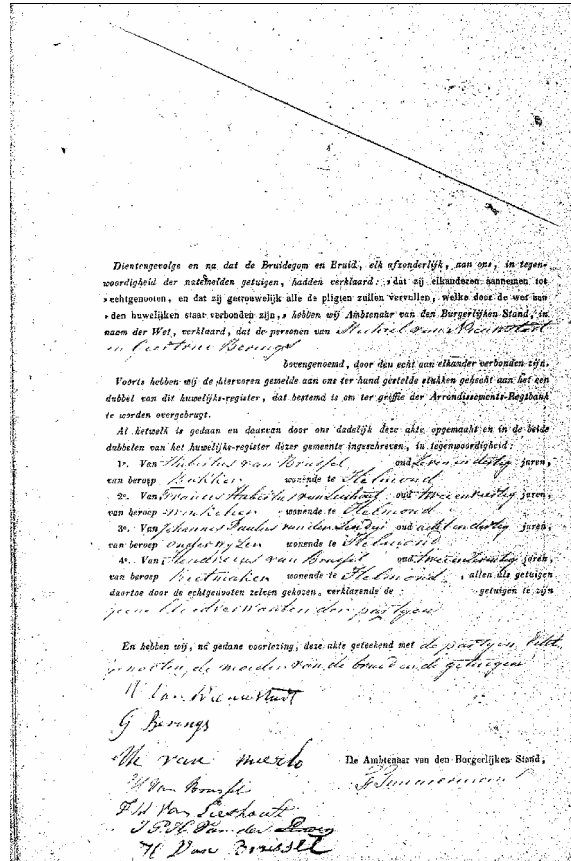 Dientengevolge en na dat de Bruidegom en Bruid, elk afzonderlijk, aan ons, in tegen-
woordigheid der natemelden getuigen, hadden verklaard: »dat zij elkanderen aannemen tot
»echtgenooten, en dat zij getrouwelijk alle de pligten zullen vervullen, welke door de wet aan
»den huwelijken staat verbonden zijn,» hebben wij Ambtenaar van den Burgerlijken Stand, in
naam der Wet, verklaard, dat de personen van Michiel van Nieuwstadt
en Berings
bovengenoemd, door den echt aan elkander verbonden zijn.
Voorts hebben wij de hiervoren gemelde aan ons ter hand gestelde stukken gehecht aan het een
dubbel van dit huwelijks-register, dat bestemd is om ter griffie der Arrondissements-Regtbank
te worden overgebragt.
At hetwelk is gedaan en daarvan door ons dadelijk deze akte opgemaakt en in de beide
dubbelen van het huwelijks-register dezer gemeente ingeschreven, in tegenwoordigheid:
1e. Van Hubertus van Brussel oud Zevenendertig jaren,
van beroep wonende te Helmond
2e. Van Francis Hubertus van Lieshout oud tweeenveertig jaren,
van beroep winkelier wonende te Helmond
3e. Van Johannes Paulus van der oud achtendertig jaren,
van beroep onderwyzer wonende te Helmond
4e. Van van Brussel oud jaren,
van beroep Rietmaker wonende te Helmond, allen als getuigen
daartoe door de echtgenooten zelven gekozen, verklarende de getuigen te zijn
geene bloedverwanten der partyen
En hebben wij, na gedane voorlezing, deze akte geteekend met de partyen Echt
genooten, de moeder van de bruid en de getuigen
M van Nieuwstadt
G Berings
van merlo
De Ambtenaar van den Burgerlijken Stand,
H Van Brussel
F H Van Lieshout
Van der
H Van Brussel